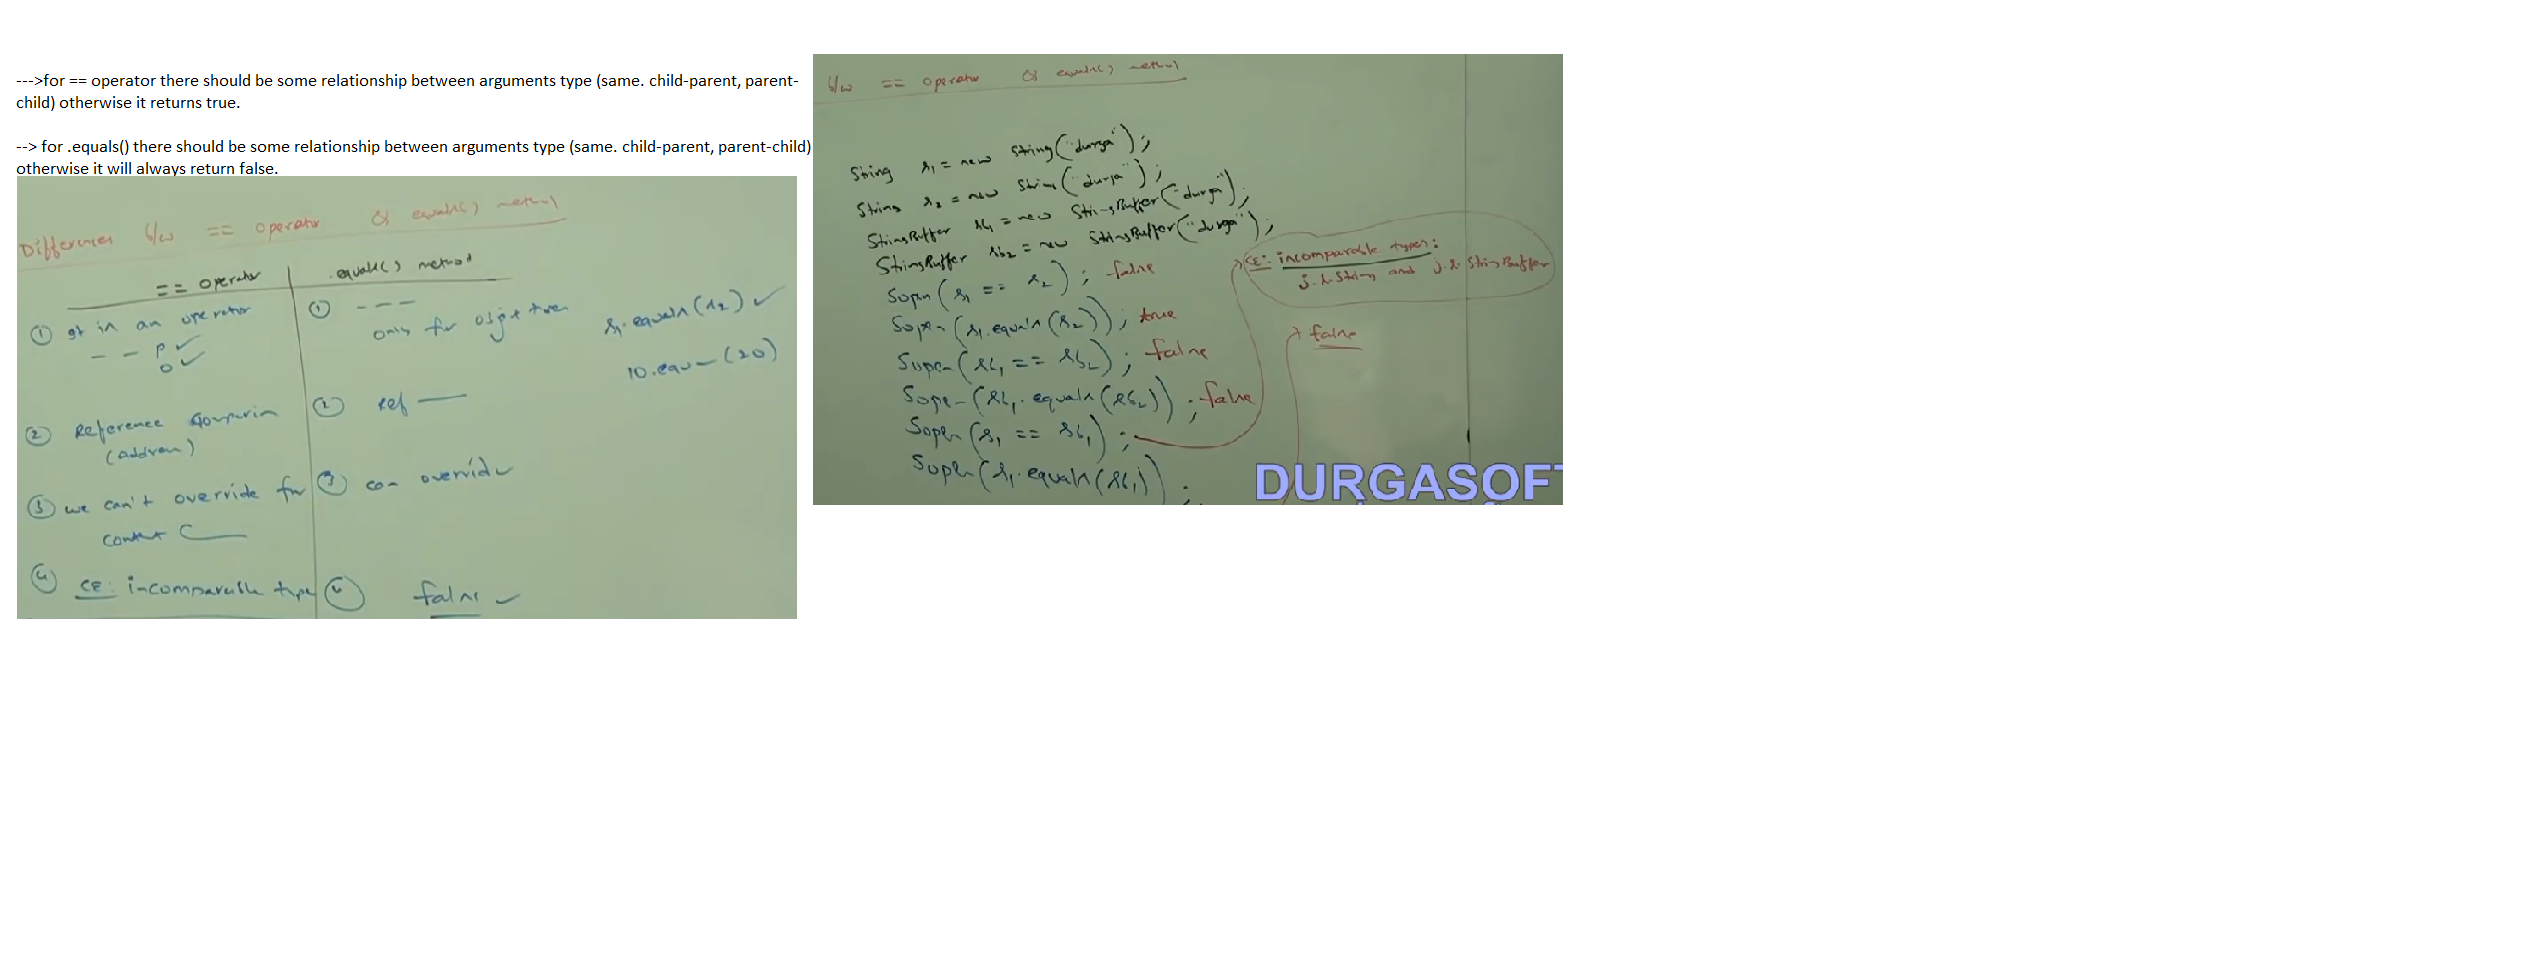 --->for == operator there should be some relationship between arguments type (same. child-parent, parent-
child) otherwise it returns true.
--> for .equals() there should be some relationship between arguments type (same. child-parent, parent-child)
otherwise it will always return false.
Differences b/w == operator & equals() method
== operator
.equals() method
① It is an operator
- - P ✓
O ✓
① - - -
only for object types
s1.equals(s2) ✓
10.equ—(20)
② Reference Comparison
(address)
② Ref —
③ we can't override for
content C
③ can override
④ CE: incomparable type
④ false ✓
b/w == operator & equals() method
String s1 = new String("durga");
String s2 = new String("durga");
StringBuffer sb1 = new StringBuffer("durga");
StringBuffer sb2 = new StringBuffer("durga");
Sopln(s1 == s2); false
Sopln(s1.equals(s2)); true
Sopln(sb1 == sb2); false
Sopln(sb1.equals(sb2)); false
Sopln(s1 == sb1);
Sopln(s1.equals(sb1));
CE: incomparable types:
j.l.String and j.l.StringBuffer
false
DURGASOFT